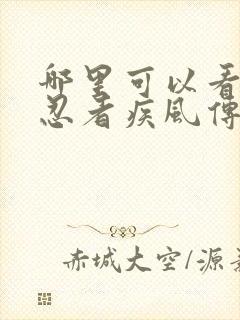 哪里可以看
忍者疾风传
赤城大空/源